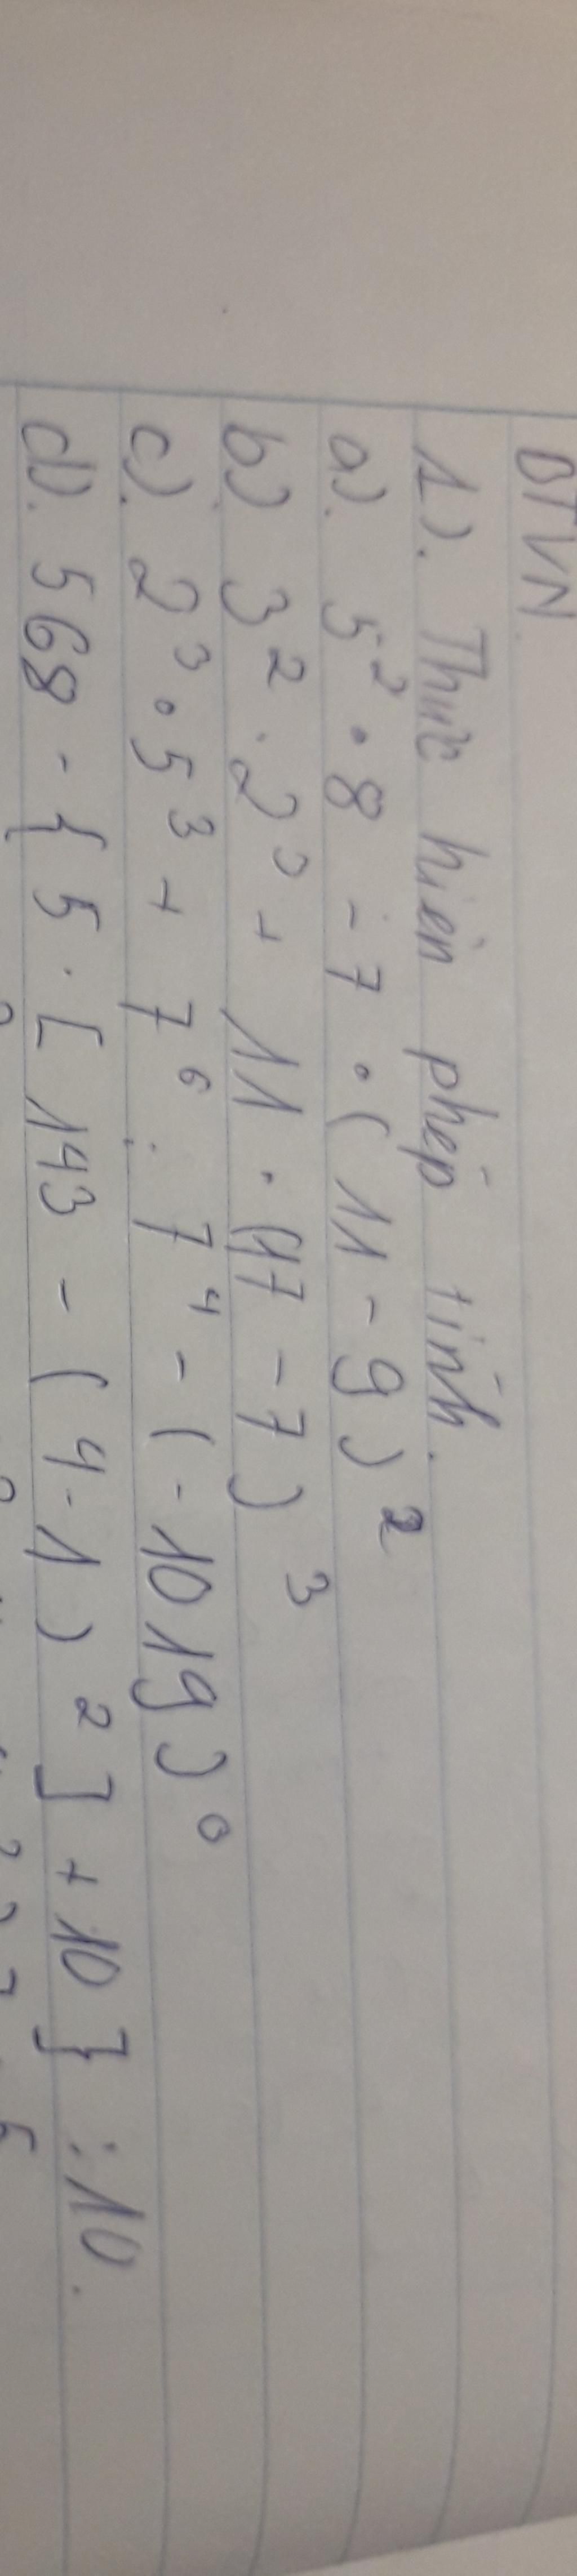 BTVN
1). Thực hiện phép tính.
a). 5² • 8 - 7 • ( 11 - 9 )²
b) 3² . 2³ + 11 • (17 - 7 )³
c). 2³ • 5³ + 7⁶ : 7⁴ - ( - 1019 )⁰
d). 568 - { 5 . [ 143 - ( 4 - 1 )² ] + 10 } : 10.